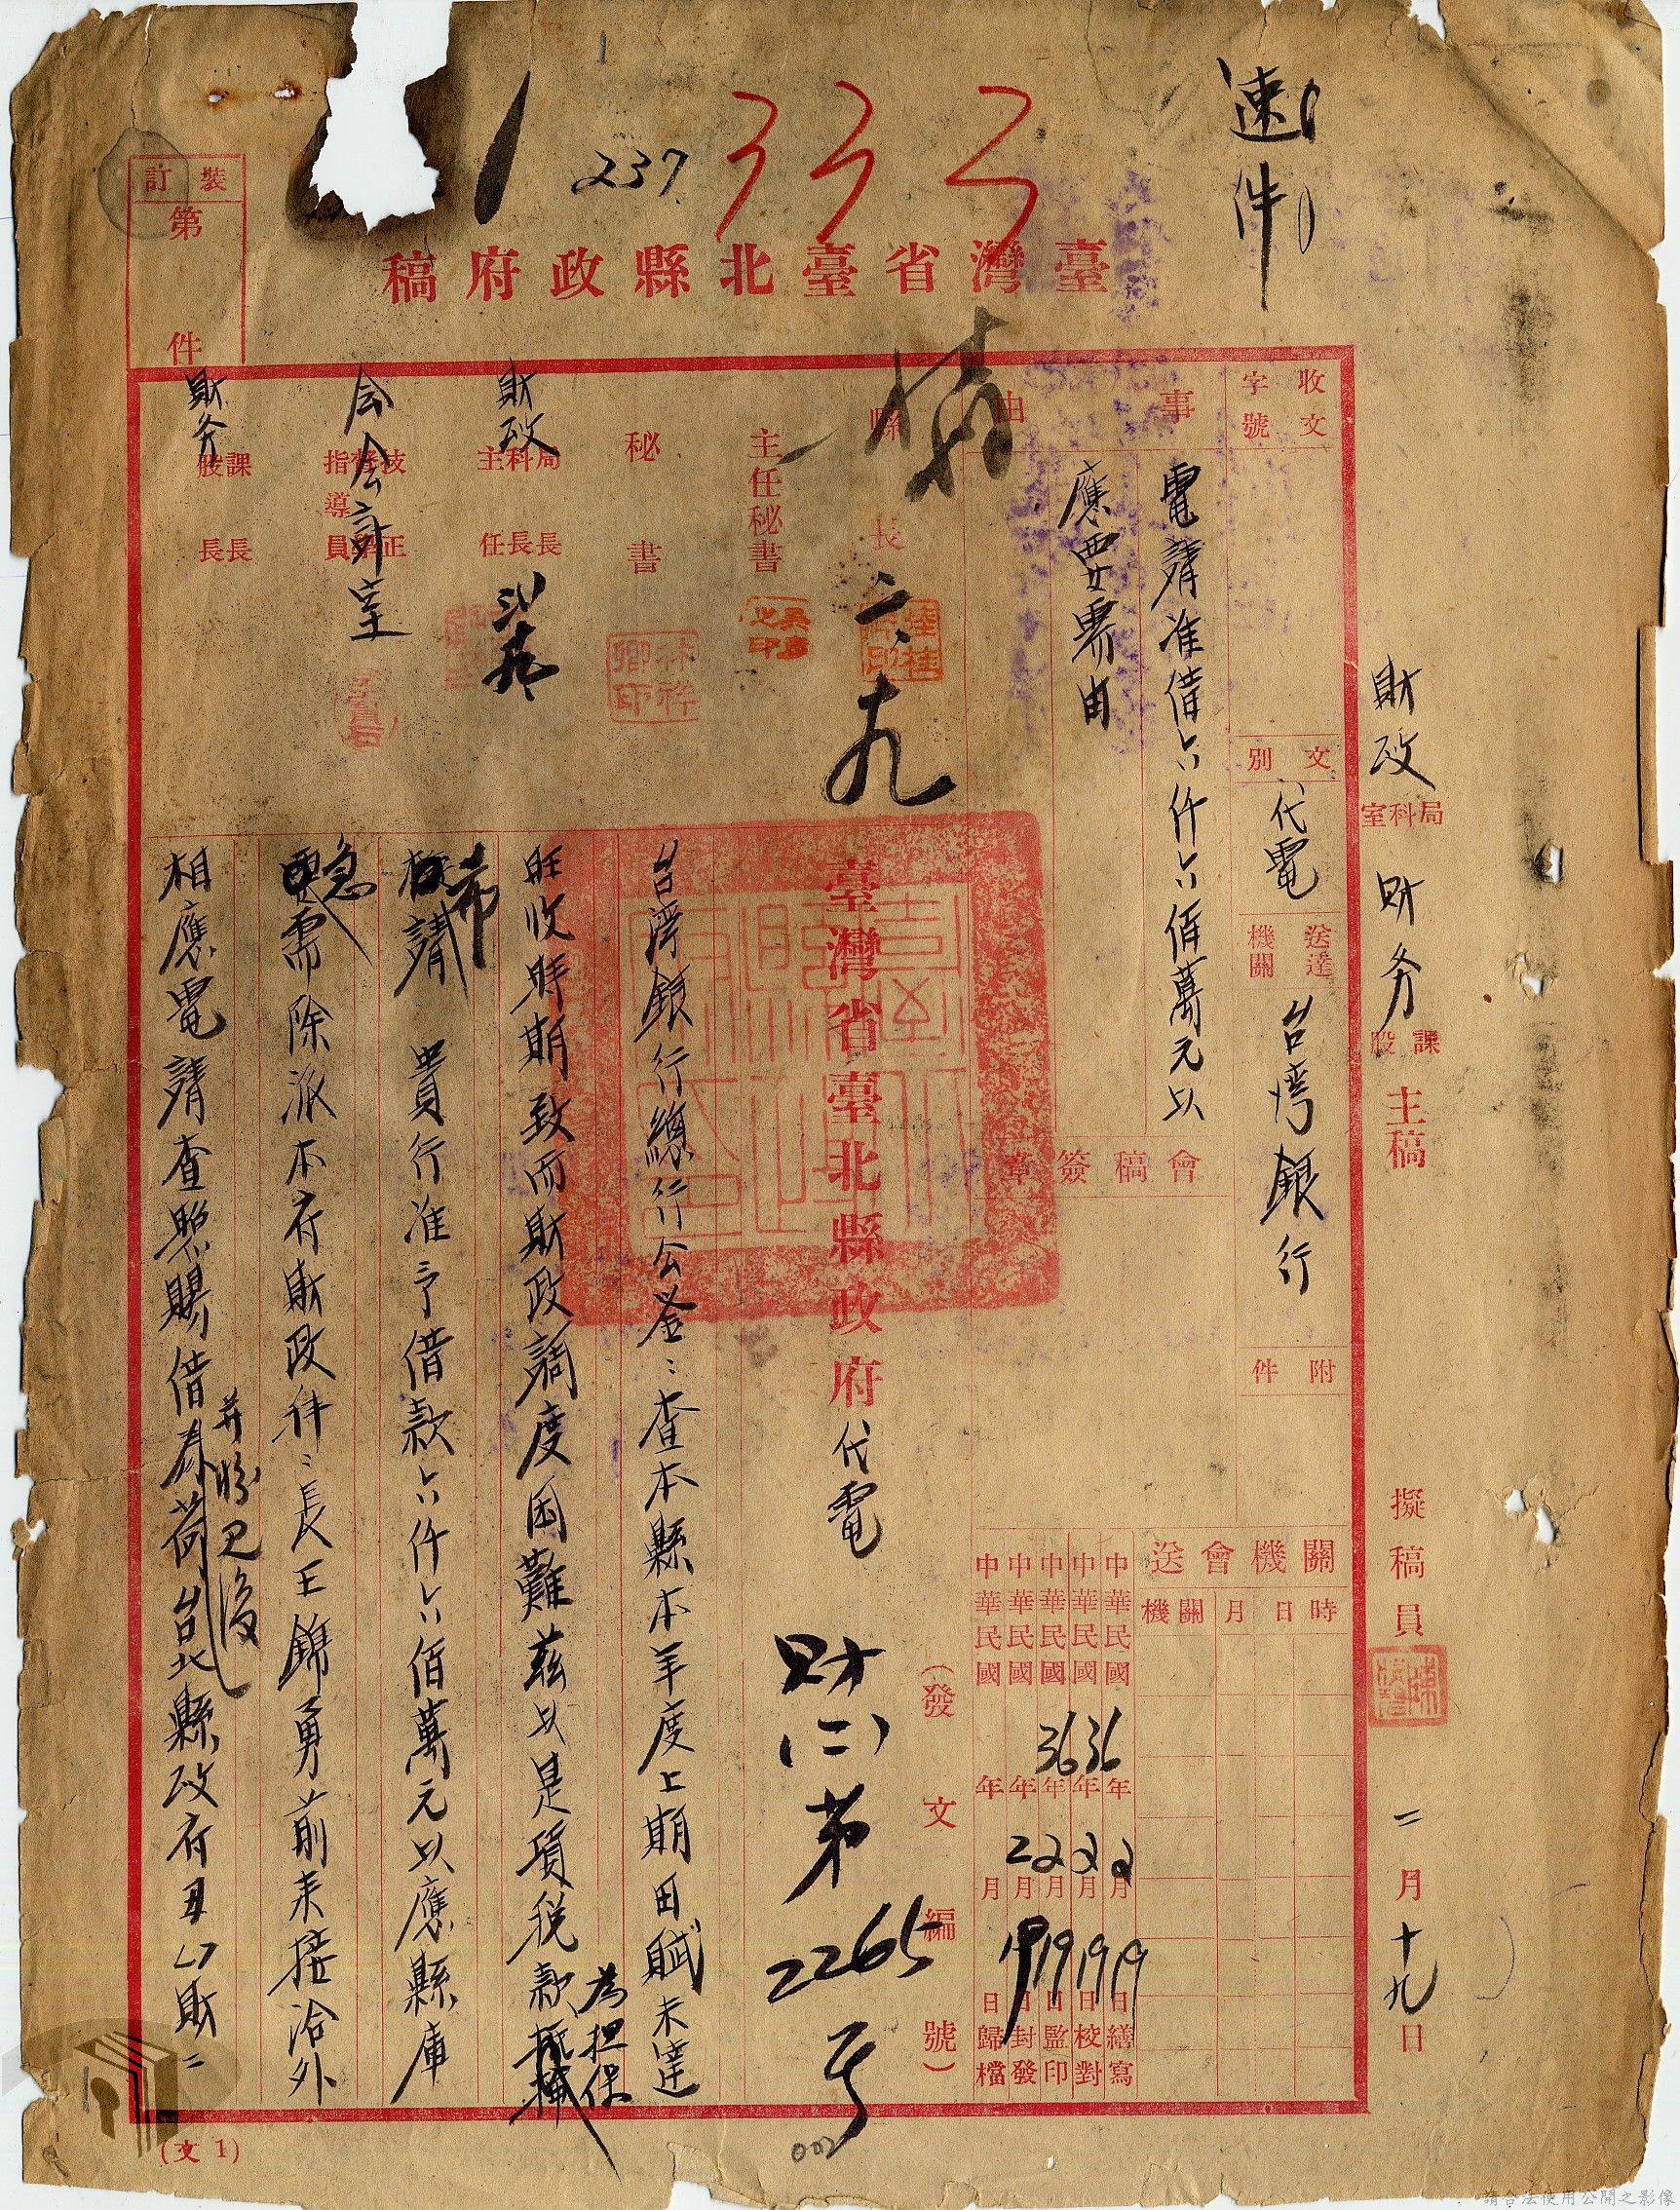 速件
332
237
臺灣省臺北縣政府稿
裝訂第 件
財政 局科室 財务 課股 主稿
擬稿員
二月十九日
收文字號
文別 代電
送達機關 台湾銀行
附件
事由
電請准借六仟六佰萬元以
應要需由
會稿簽章
關機會送
時日月 關機
中華民國36年2月19日繕寫
中華民國36年2月19日校對
中華民國 年2月19日監印
中華民國 年2月19日封發
中華民國 年 月 日歸檔
縣長
二、九
主任秘書
秘書
財政 局科主長長任
会会計室
技正 督學 指導員
財务
課長 股長
(發文編號)
臺灣省臺北縣政府代電
財(二)第2265号
台湾銀行總行公鉴:查本縣本年度上期田賦未達
旺收時期致而財政調度困難茲以是項税款
為担保
請 貴行准予借款六仟六佰萬元以應縣庫
希
急
需除派本府財政科:長王錦勇前来接洽外
相應電請查照賜借為荷台北縣政府丑 財二
并盼見復
002
(文1)
請合法使用公開之影像